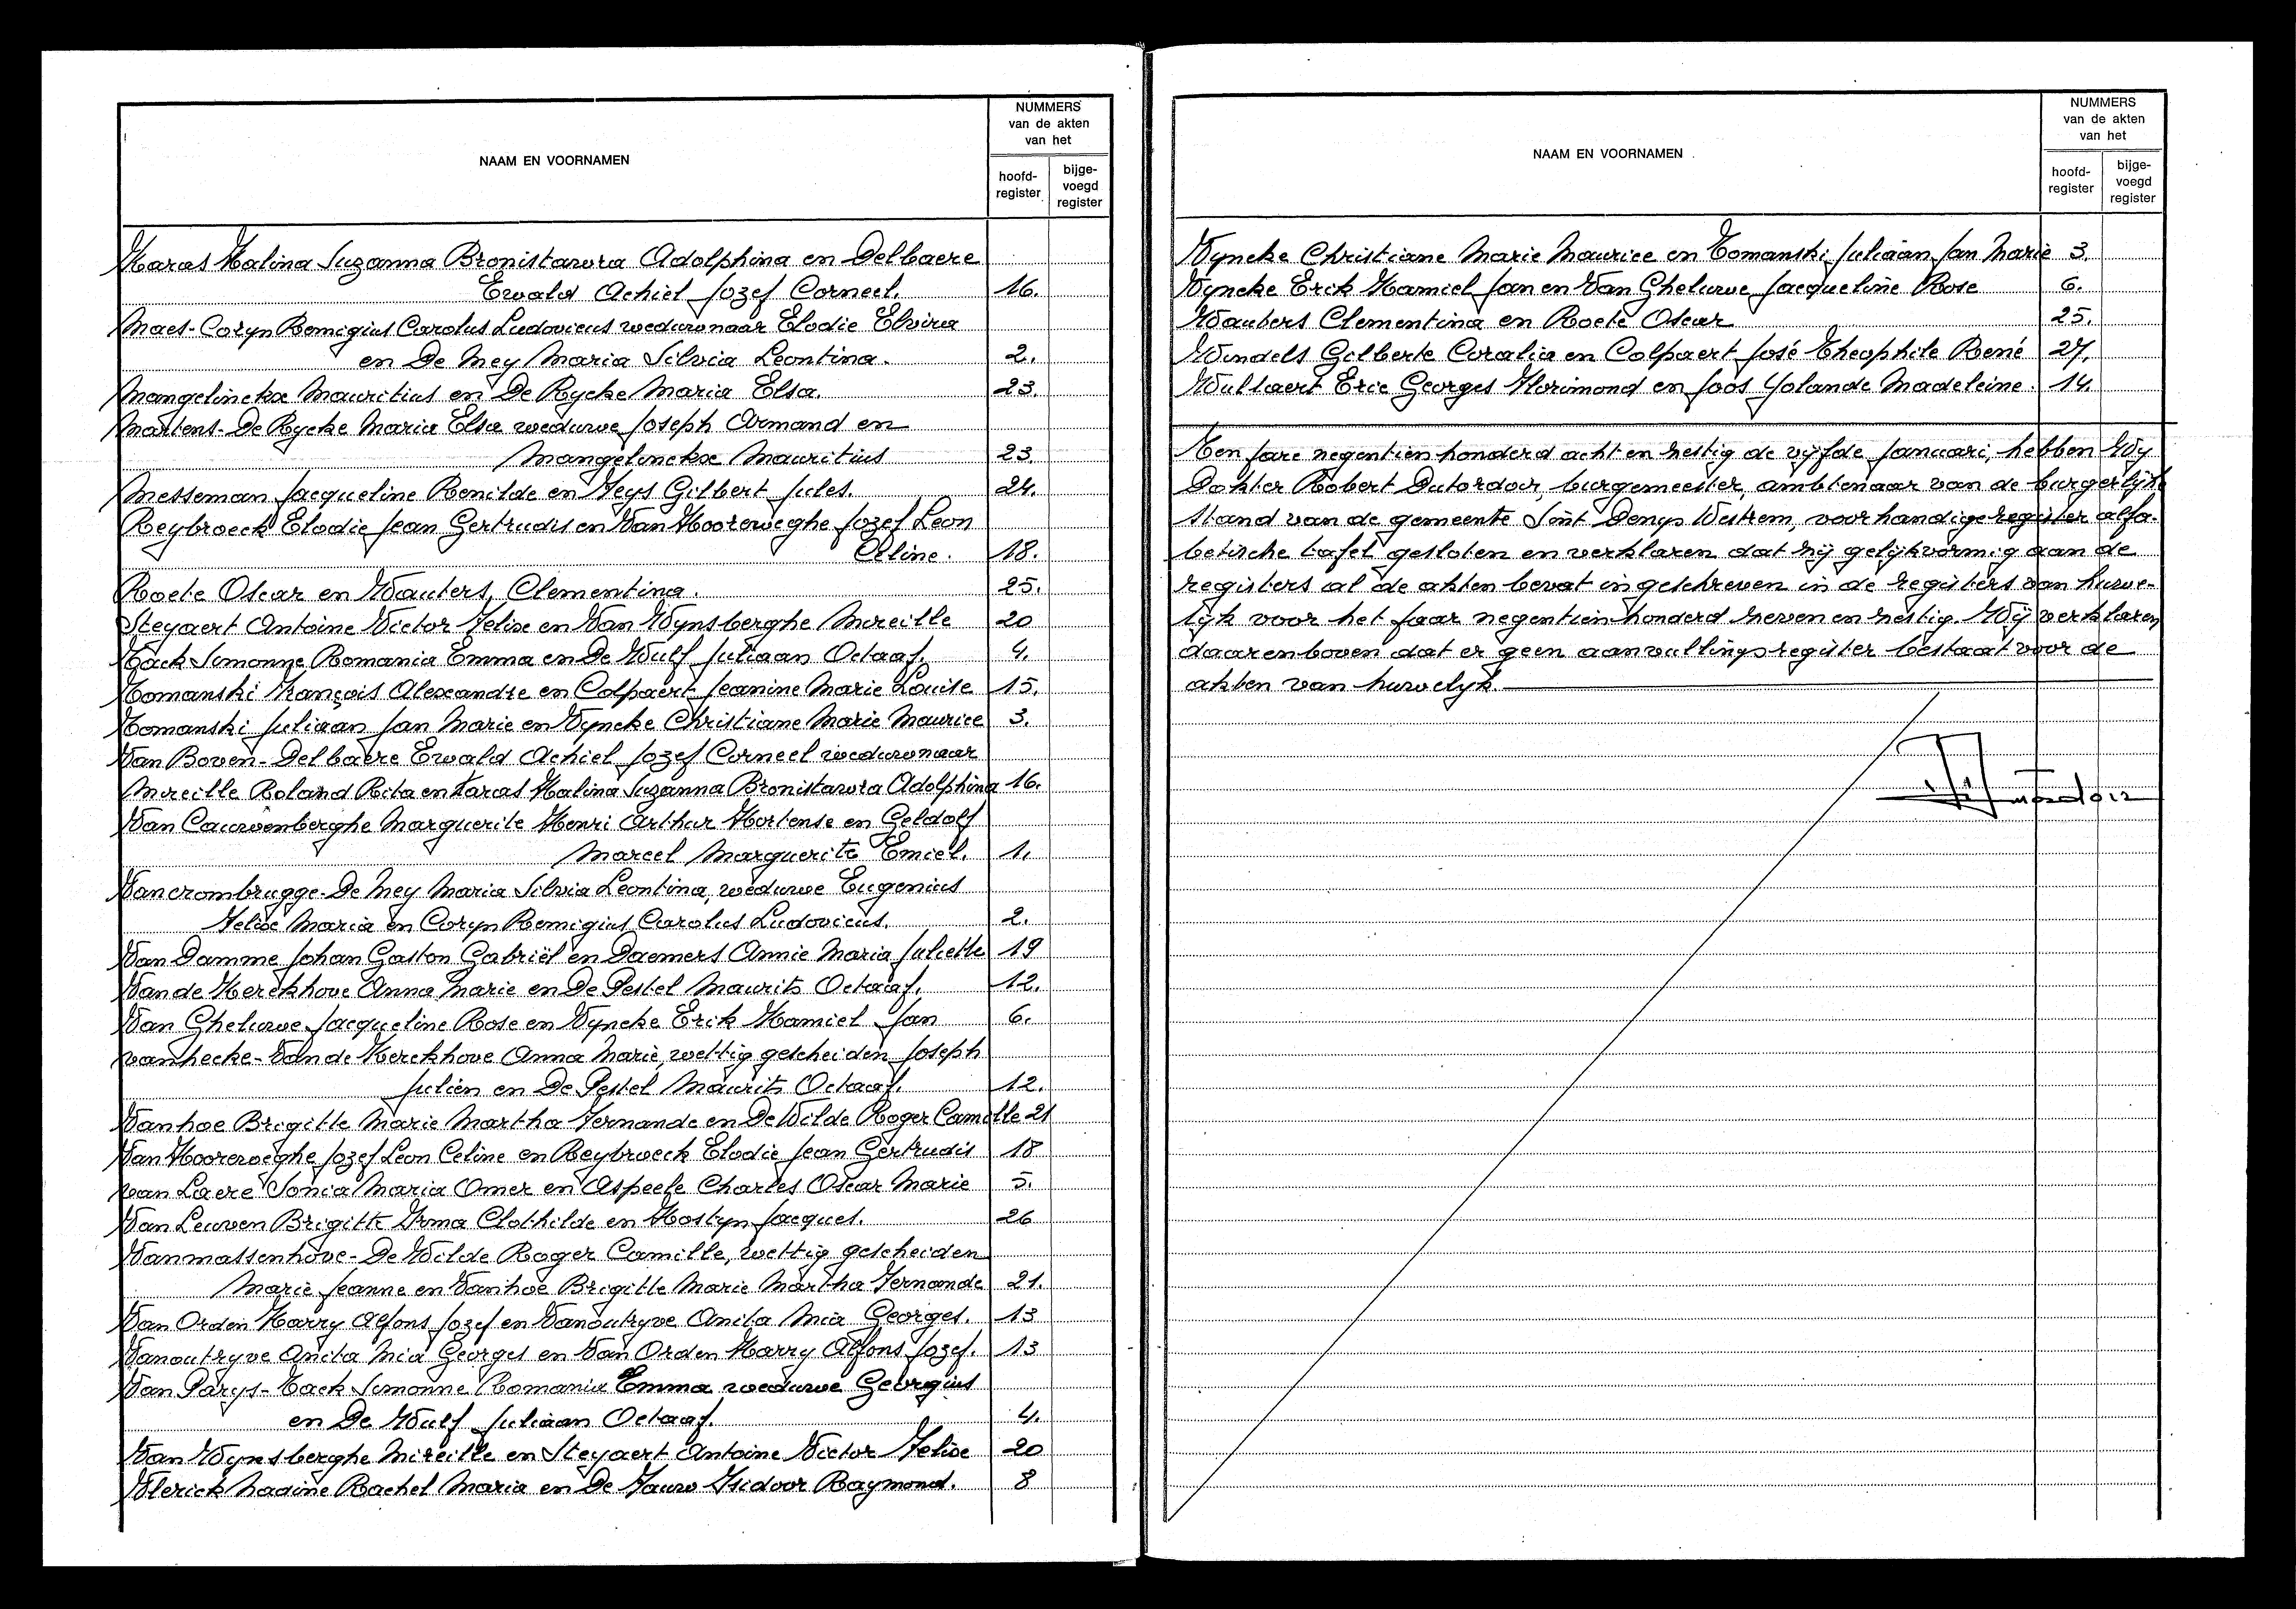 NAAM EN VOORNAMEN
NUMMERS
van de akten
van het
hoofd-
register
bijge-
voegd
register
Karas Halina Suzanna Bronistawa Adolphina en Delbaere
Ewald Achiel Jozef Corneel. 16.
Maes-Coryn Remigius Carolus Ludovicus weduwnaar Elodie Elvira
en De Mey Maria Silvia Leontina. 2.
Mangelinckx Mauritius en De Rycke Maria Elsa. 23.
Martens-De Rycke Maria Elsa weduwe Joseph Armand en
Mangelinckx Mauritius 23.
Messeman Jacqueline Renilde en Feys Gilbert Jules. 24.
Reybroeck Elodie Jean Gertrudis en Van Hooreweghe Jozef Leon
Céline. 18.
Roete Oscar en Wauters, Clementina. 25.
Steyaert Antoine Victor Felix en Van Wynsberghe Mireille 20
Tack Simonne Romania Emma en De Wulf Juliaan Octaaf. 4.
Tomanski François Alexandre en Colpaert Jeanine Marie Louise 15.
Tomanski Juliaan Jan Marie en Vyncke Christiane Marie Maurice 3.
Van Boven-Delbaere Ewald Achiel Jozef Corneel weduwnaar
Mireille Roland Rita en Karas Halina Suzanna Bronistawa Adolphina 16.
Van Cauwenberghe Marguerite Henri Arthur Hortense en Geldolf
Marcel Marguerite Emiel. 1.
Vancrombrugge-De Mey Maria Silvia Leontina, weduwe Eugenius
Felix Maria en Coryn Remigius Carolus Ludovicus. 2.
Van Damme Johan Gaston Gabriël en Daemers Annie Maria Juliette 19
Van de Kerckhove Anna Marie en De Pestel Maurits Octaaf. 12.
Van Gheluwe Jacqueline Rose en Vyncke Erik Kamiel Jan 6.
vanhecke-Van de Kerckhove Anna Marie, wettig gescheiden Joseph
Julien en De Pestel Maurits Octaaf. 12.
Vanhoe Brigitte Marie Martha Fernande en De Wilde Roger Camille 21
Van Hooreweghe Jozef Leon Céline en Reybroeck Elodie Jean Gertrudis 18
van Laere Sonia Maria Omer en Aspeele Charles Oscar Marie 5.
Van Leuven Brigitte Irma Clothilde en Hostyn Jacques. 26
Vanmassenhove-De Wilde Roger Camille, wettig gescheiden
Marie Jeanne en Vanhoe Brigitte Marie Martha Fernande 21.
Van Orden Harry Alfons Jozef en Vanoutryve Anita Mia Georges. 13
Vanoutryve Anita Mia Georges en Van Orden Harry Alfons Jozef. 13
Van Parys-Tack Simonne Romania Emma weduwe Georgius
en De Wulf Juliaan Octaaf. 4.
Van Wynsberghe Mireille en Steyaert Antoine Victor Felix 20
Vlerick Nadine Rachel Maria en De Fauw Isidoor Raymond. 8
NAAM EN VOORNAMEN
NUMMERS
van de akten
van het
hoofd-
register
bijge-
voegd
register
Vyncke Christiane Marie Maurice en Tomanski Juliaan Jan Marie 3.
Vyncke Erik Kamiel Jan en Van Gheluwe Jacqueline Rose 6.
Wauters Clementina en Roete Oscar 25.
Windels Gilberte Coralia en Colpaert José Theophile René 27.
Wullaert Eric Georges Florimond en Joos Yolande Madeleine. 14.
Ten jare negentien honderd acht en zestig de vijfde Januari, hebben Wy
Dokter Robert Dutordoir, burgemeester, ambtenaar van de burgerlijke
stand van de gemeente Sint Denys Westrem, voorhandige register alfa-
betische tafel gesloten en verklaren dat zij gelijkvormig aan de
registers al de akten bevat ingeschreven in de registers van huwe-
lijk voor het jaar negentien honderd zeven en zestig. Wij verklaren
daarenboven dat er geen aanvullingsregister bestaat voor de
akten van huwelijk.